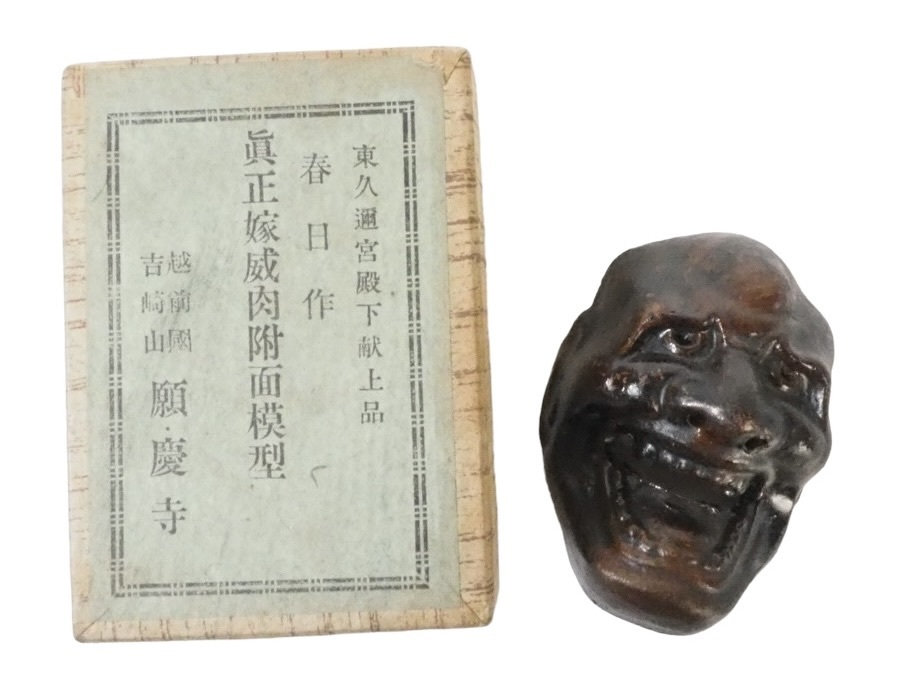 東久邇宮殿下献上品
春日作
眞正嫁威肉附面模型
越前國
吉崎山
願慶寺